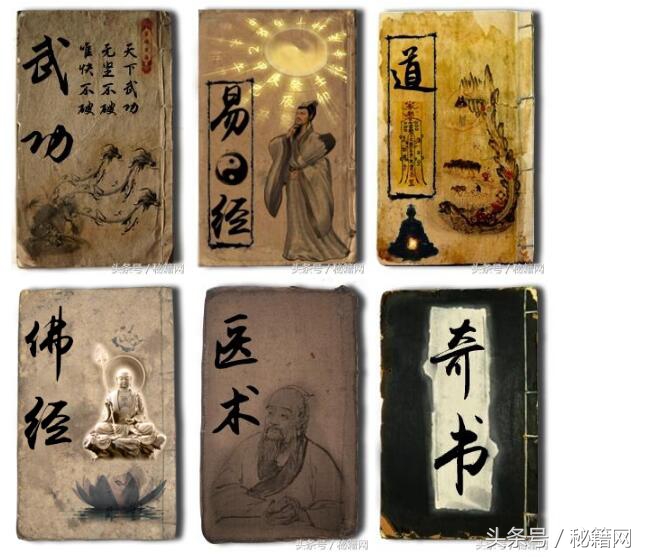 武功
天下武功
无坚不破
唯快不破
头条号 / 秘籍网
易经
头条号 / 秘籍网
道
头条号 / 秘籍网
佛经
头条号 / 秘籍网
医术
头条号 / 秘籍网
奇书
头条号 / 秘籍网